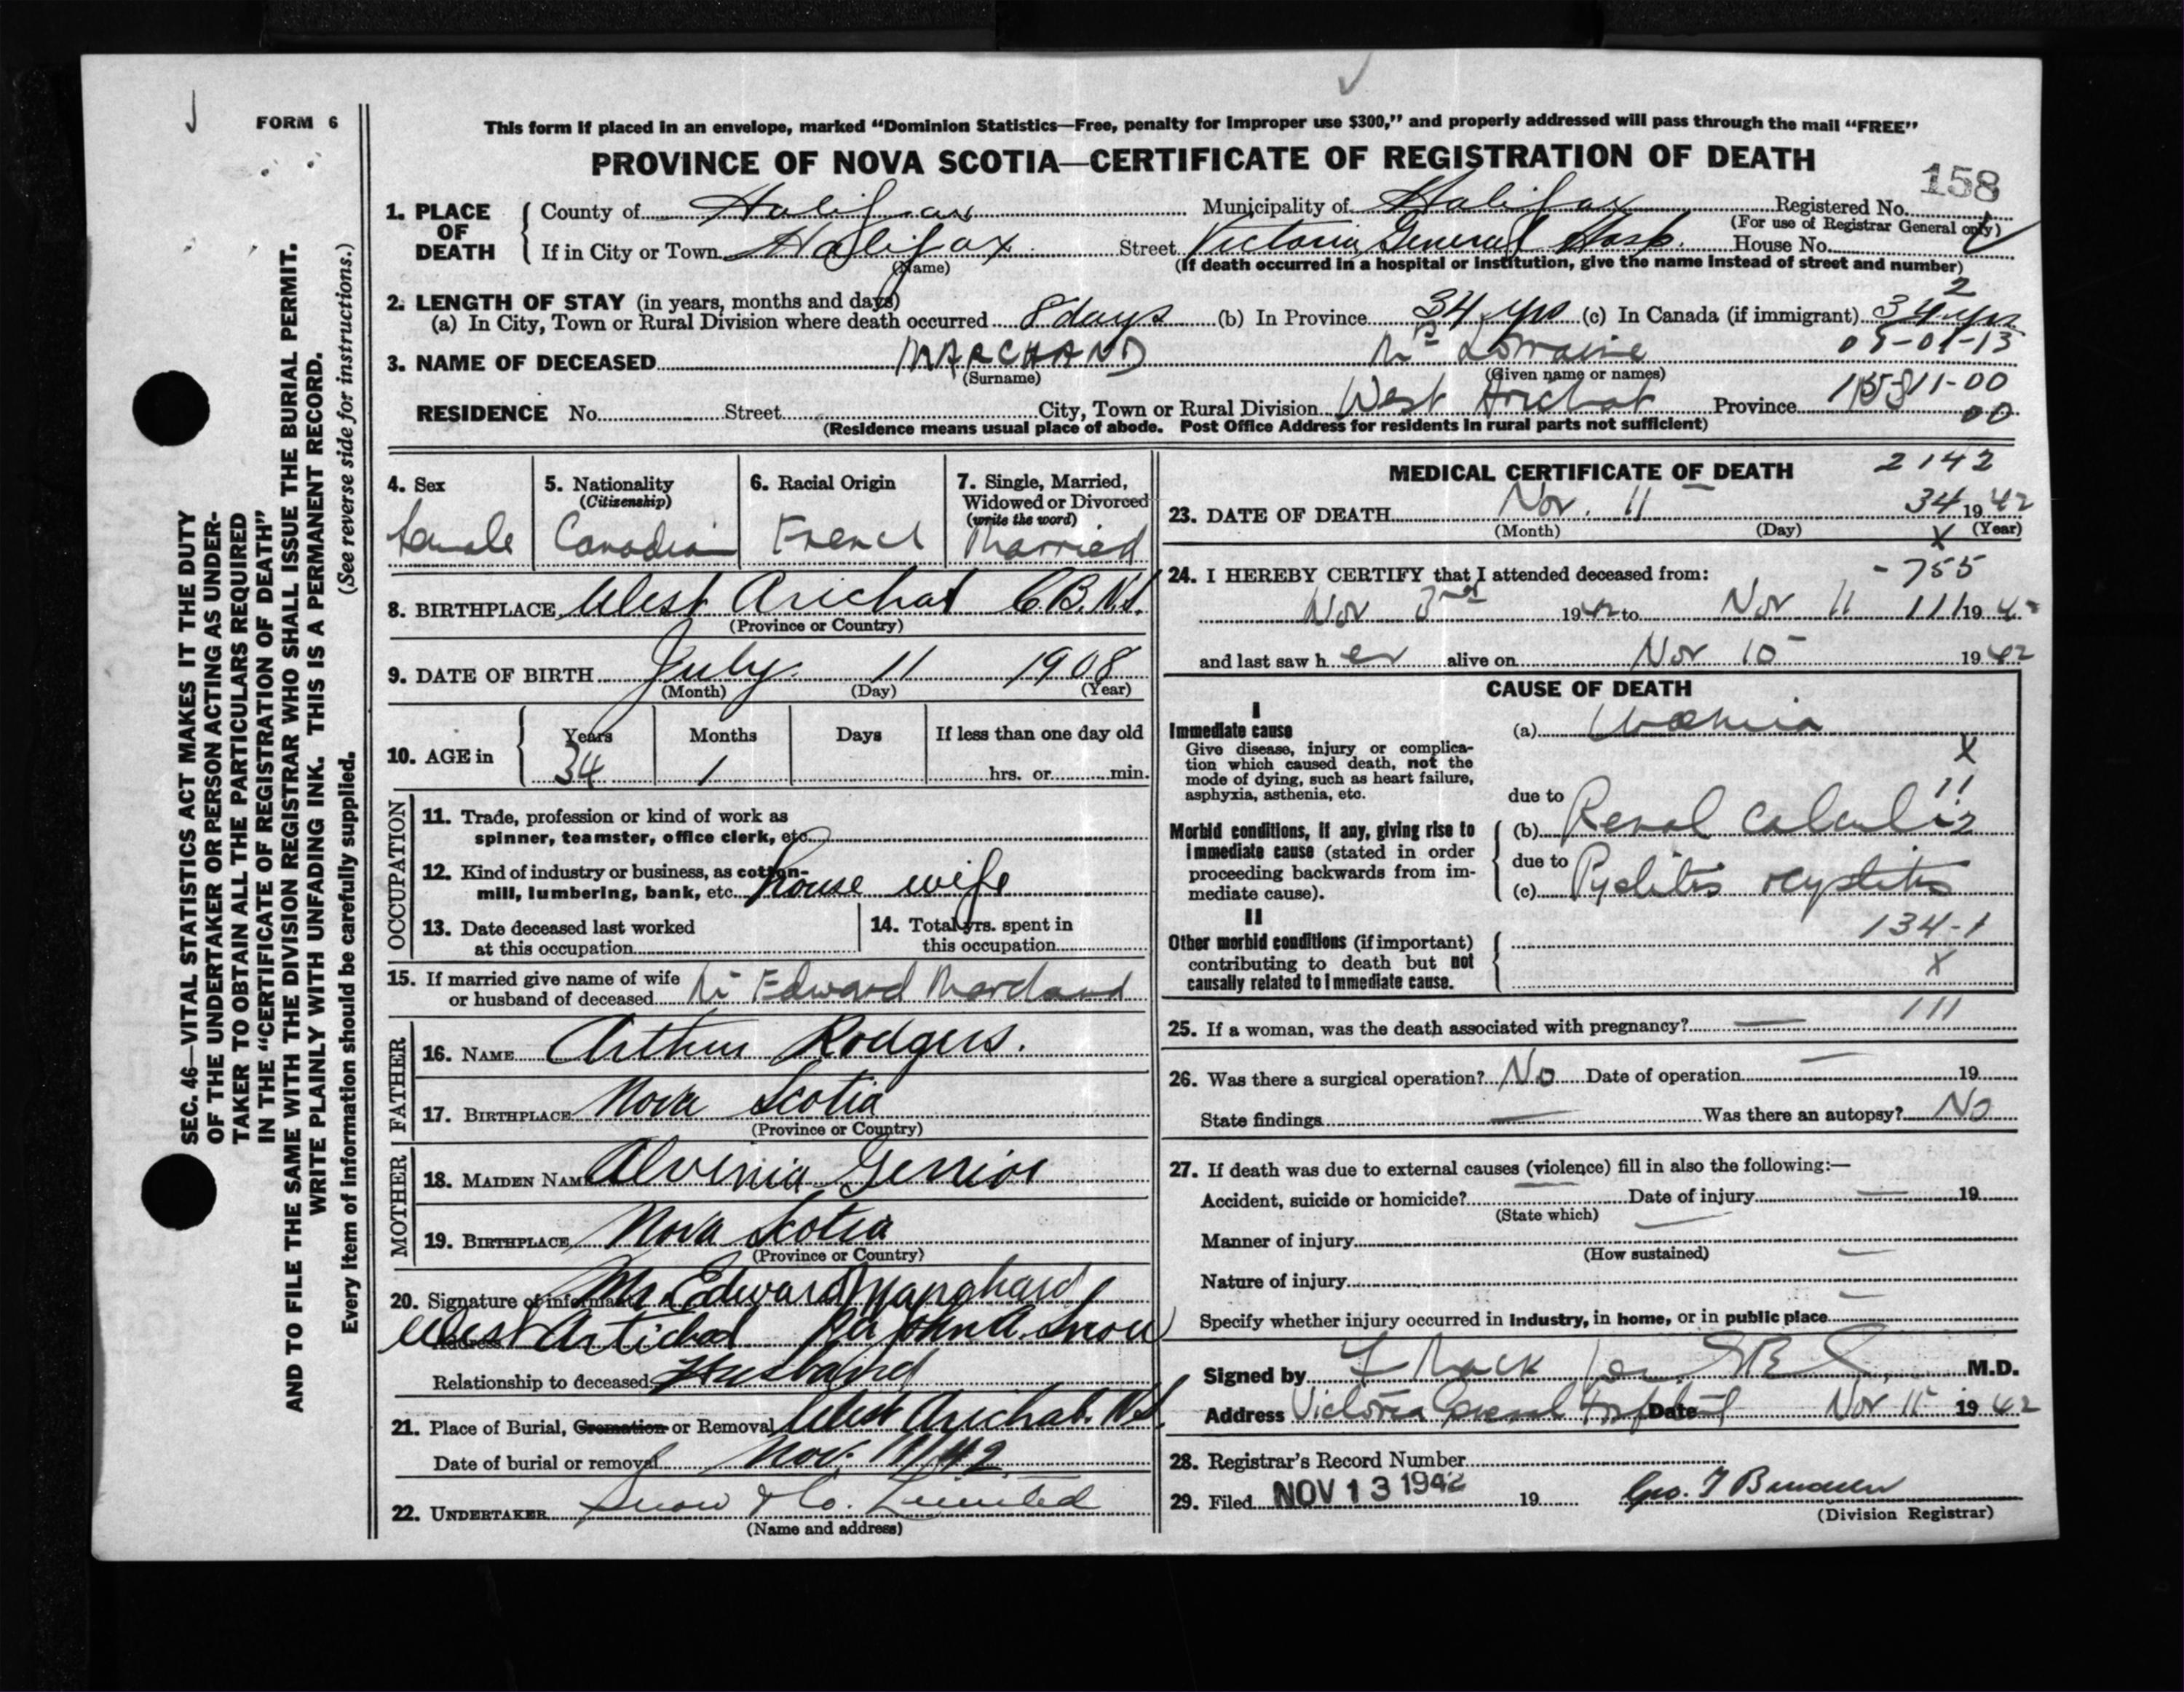 FORM 6
This form if placed in an envelope, marked "Dominion Statistics—Free, penalty for improper use $300," and properly addressed will pass through the mail "FREE"
PROVINCE OF NOVA SCOTIA—CERTIFICATE OF REGISTRATION OF DEATH
158
1. PLACE OF DEATH
County of Halifax Municipality of Halifax Registered No.
(For use of Registrar General only)
If in City or Town Halifax Street Victoria General Hosp. House No.
(Name) (If death occurred in a hospital or institution, give the name instead of street and number)
2. LENGTH OF STAY (in years, months and days)
2
(a) In City, Town or Rural Division where death occurred 8 days (b) In Province 34 yrs (c) In Canada (if immigrant) 34 yrs
3. NAME OF DECEASED MARCHAND Mrs Lorraine 05-01-13
(Surname) (Given name or names)
RESIDENCE No. Street City, Town or Rural Division West Arichat Province 00
(Residence means usual place of abode. Post Office Address for residents in rural parts not sufficient)
4. Sex
female
5. Nationality
(Citizenship)
Canadian
6. Racial Origin
French
7. Single, Married,
Widowed or Divorced
(write the word)
Married
8. BIRTHPLACE West Arichat C.B. N.S.
(Province or Country)
9. DATE OF BIRTH July 11 1908
(Month) (Day) (Year)
10. AGE in
Years Months Days If less than one day old
34 1 hrs. or min.
OCCUPATION
11. Trade, profession or kind of work as
spinner, teamster, office clerk, etc.
12. Kind of industry or business, as cotton-
mill, lumbering, bank, etc. house wife
13. Date deceased last worked
at this occupation
14. Total yrs. spent in
this occupation
15. If married give name of wife
or husband of deceased Mr Edward Marchand
FATHER
16. NAME Arthur Rodgers.
17. BIRTHPLACE Nova Scotia
(Province or Country)
MOTHER
18. MAIDEN NAME Alvenia Gerrior
19. BIRTHPLACE Nova Scotia
(Province or Country)
20. Signature of informant Mr Edward Marchand
Address West Arichat Per John A. Snow
Relationship to deceased Husband
21. Place of Burial, Cremation or Removal West Arichat. N.S.
Date of burial or removal Nov. 11/42
22. UNDERTAKER Snow & Co. Limited
(Name and address)
MEDICAL CERTIFICATE OF DEATH
2142
34
23. DATE OF DEATH Nov. 11 1942
(Month) (Day) (Year)
X
24. I HEREBY CERTIFY that I attended deceased from:
-755
Nov 3rd 1942 to Nov 11 111 1942
and last saw her alive on Nov 10 1942
CAUSE OF DEATH
I
Immediate cause
Give disease, injury or complica-
tion which caused death, not the
mode of dying, such as heart failure,
asphyxia, asthenia, etc.
(a) Uraemia
X
due to
11
Morbid conditions, if any, giving rise to
immediate cause (stated in order
proceeding backwards from im-
mediate cause).
(b) Renal calculi
due to
(c) Pyelitis cystitis
II
134-1
Other morbid conditions (if important)
contributing to death but not
causally related to immediate cause.
X
111
25. If a woman, was the death associated with pregnancy? —
26. Was there a surgical operation? No Date of operation — 19
State findings — Was there an autopsy? No
27. If death was due to external causes (violence) fill in also the following:—
Accident, suicide or homicide? Date of injury — 19
(State which)
Manner of injury
(How sustained)
Nature of injury
Specify whether injury occurred in industry, in home, or in public place
Signed by F Mack M.D.
Address Victoria General Hospital Date Nov 11 1942
28. Registrar's Record Number
29. Filed NOV 13 1942 19
(Division Registrar)
SEC. 46—VITAL STATISTICS ACT MAKES IT THE DUTY
OF THE UNDERTAKER OR PERSON ACTING AS UNDER-
TAKER TO OBTAIN ALL THE PARTICULARS REQUIRED
IN THE "CERTIFICATE OF REGISTRATION OF DEATH"
AND TO FILE THE SAME WITH THE DIVISION REGISTRAR WHO SHALL ISSUE THE BURIAL PERMIT.
WRITE PLAINLY WITH UNFADING INK. THIS IS A PERMANENT RECORD.
Every item of information should be carefully supplied. (See reverse side for instructions.)